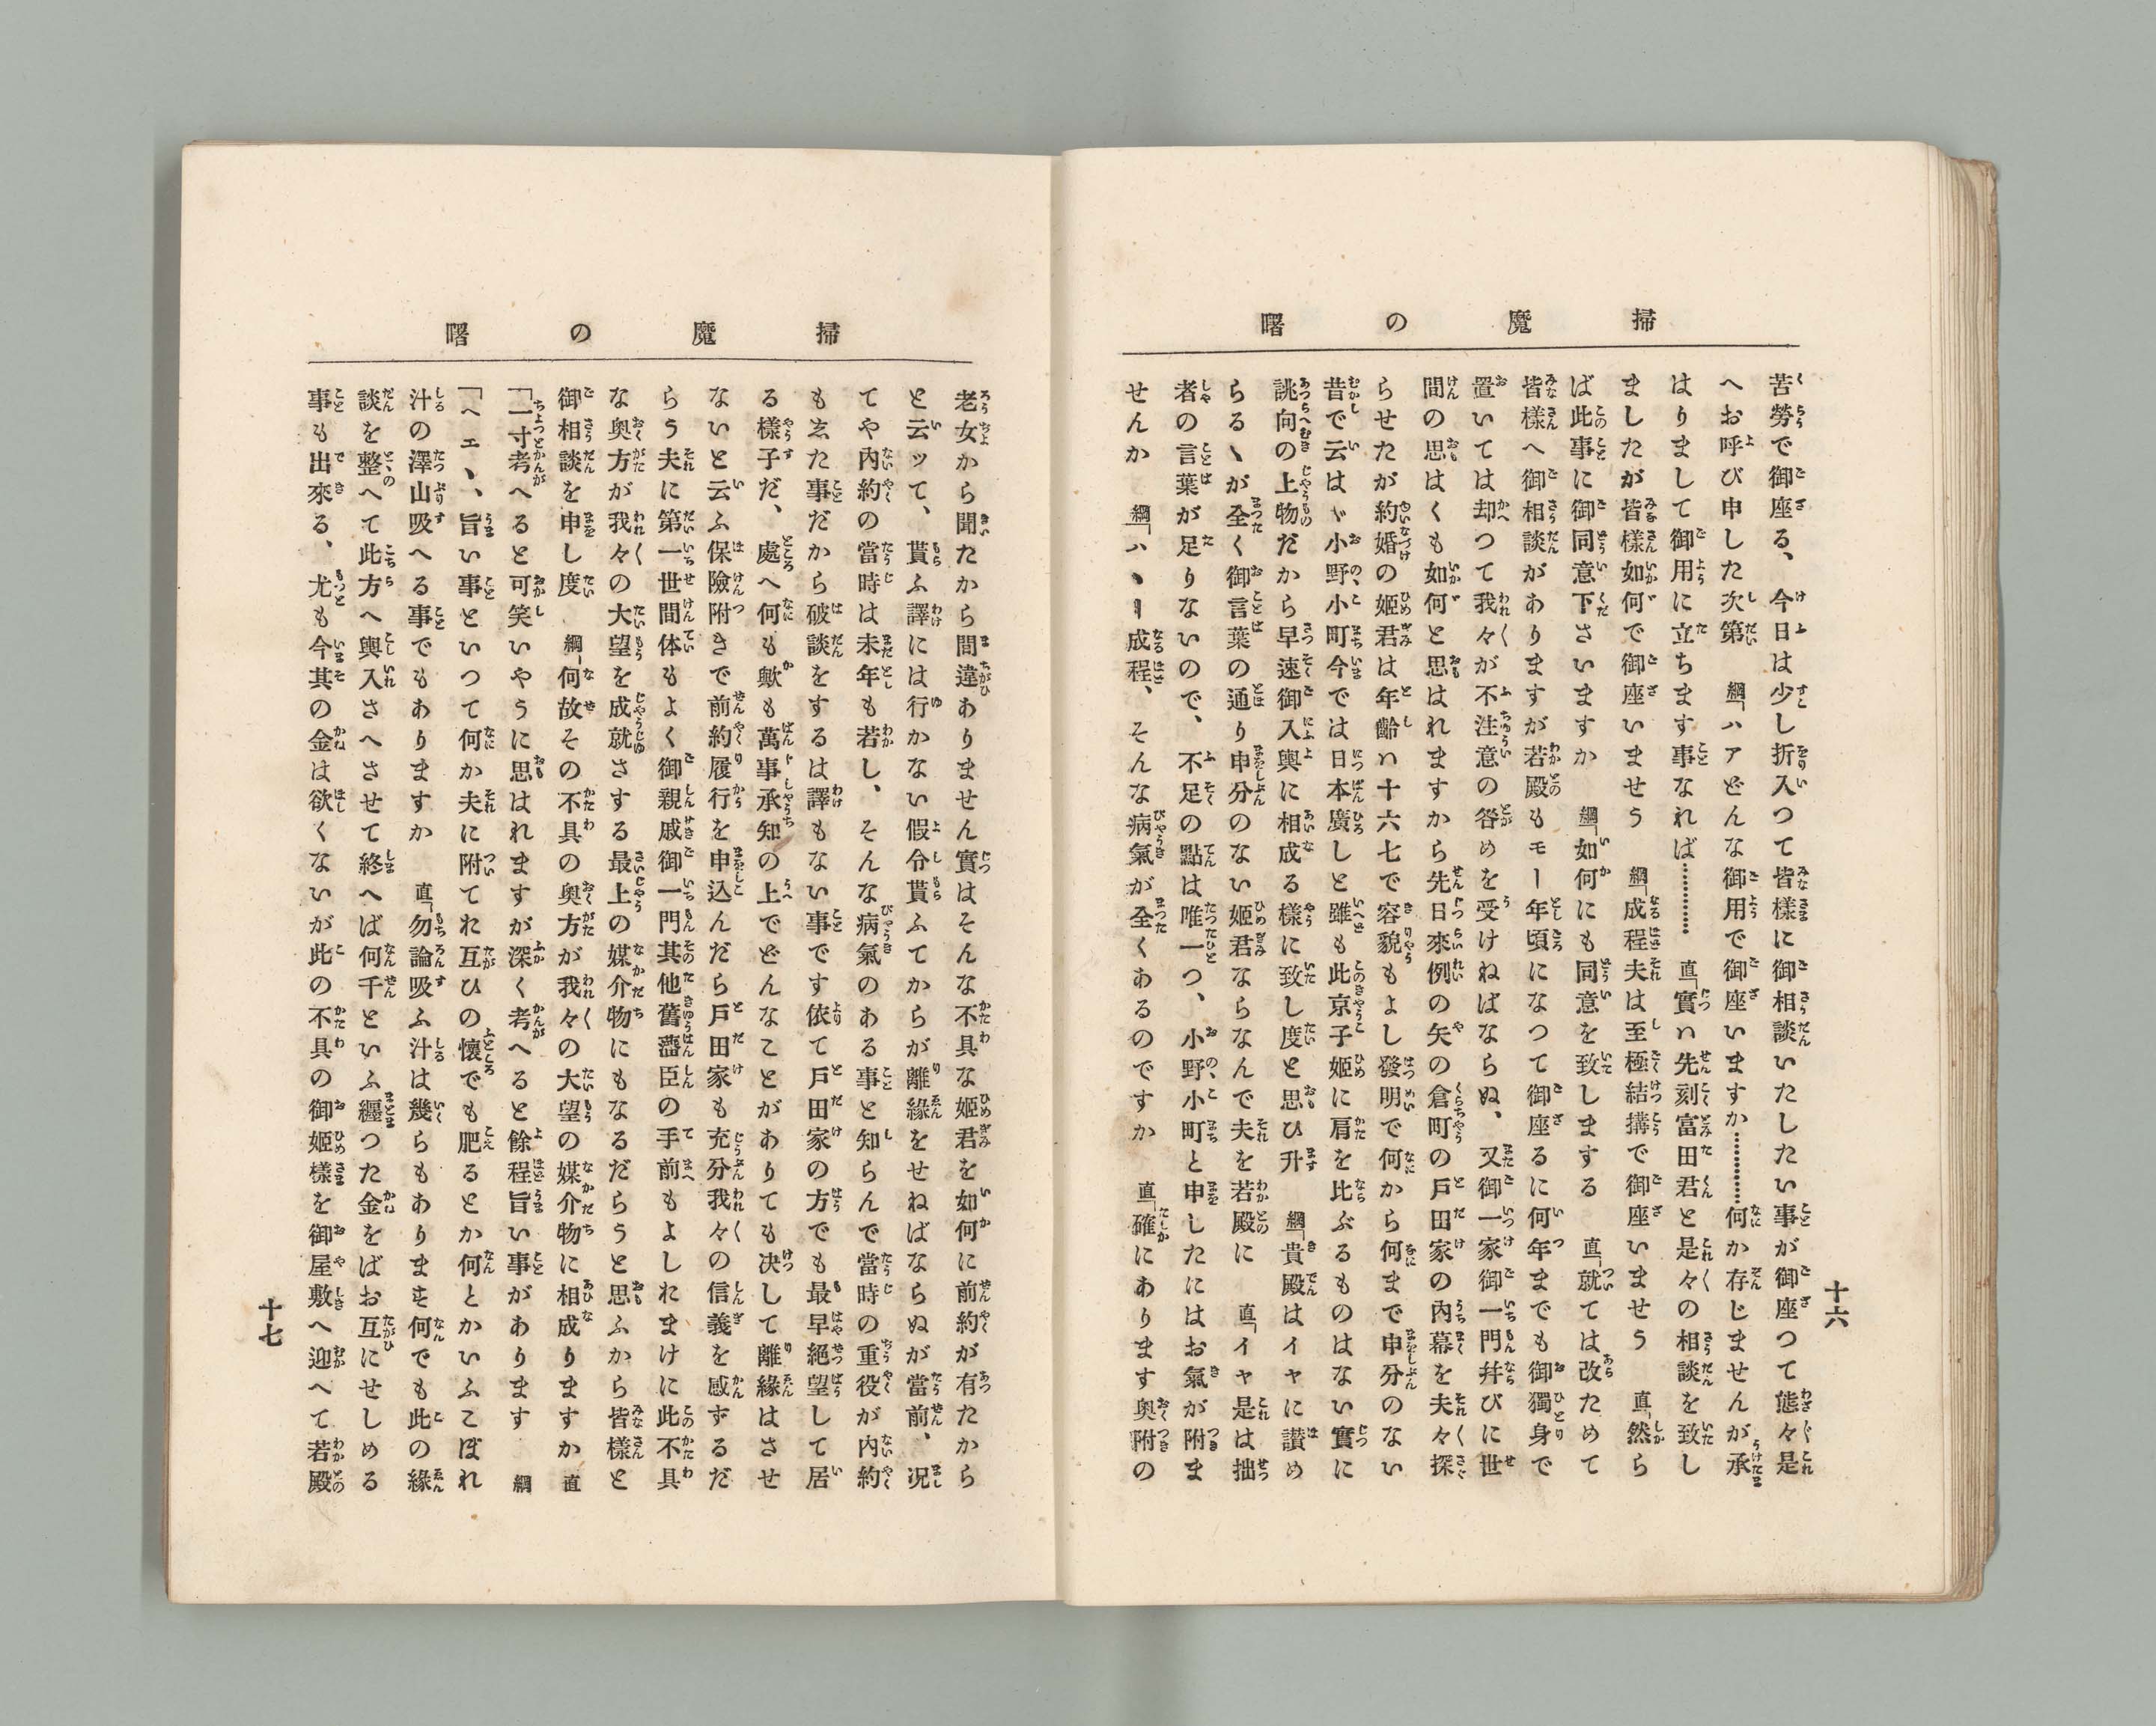 掃魔の曙
十六
苦勞で御座る、今日は少し折入つて皆樣に御相談いたしたい事が御座つて態々是
へお呼び申した次第 綱「ハアどんな御用で御座いますか…………何か存じませんが承
はりまして御用に立ちます事なれば………… 直「實ハ先刻富田君と是々の相談を致し
ましたが皆樣如何で御座いませう 綱「成程夫は至極結搆で御座いませう 直「然ら
ば此事に御同意下さいますか 綱「如何にも同意を致しまする 直「就ては改ためて
皆樣へ御相談がありますが若殿もモー年頃になつて御座るに何年までも御獨身で
置いては却つて我々が不注意の咎めを受けねばならぬ、又御一家御一門幷びに世
間の思はくも如何と思はれますから先日來例の矢の倉町の戸田家の内幕を夫々探
らせたが約婚の姬君は年齡ハ十六七で容貌もよし發明で何から何まで申分のない
昔で云はゞ小野小町今では日本廣しと雖も此京子姬に肩を比ぶるものはない實に
誂向の上物だから早速御入輿に相成る樣に致し度と思ひ升 綱「貴殿はイヤに讃め
らるゝが全く御言葉の通り申分のない姬君ならなんで夫を若殿に 直「イヤ是は拙
者の言葉が足りないので、不足の點は唯一つ、小野小町と申したにはお氣が附ま
せんか 綱「ハヽー成程、そんな病氣が全くあるのですか 直「確にあります奥附の
掃魔の曙
老女から聞たから間違ありません實はそんな不具な姬君を如何に前約が有たから
と云ッて、貰ふ譯には行かない假令貰ふてからが離緣をせねばならぬが當前、况
てや内約の當時は未年も若し、そんな病氣のある事と知らんで當時の重役が内約
もゑた事だから破談をするは譯もない事です依て戸田家の方でも最早絕望して居
る樣子だ、處へ何も歟も萬事承知の上でどんなことがありても决して離緣はさせ
ないと云ふ保險附きで前約履行を申込んだら戸田家も充分我々の信義を感ずるだ
らう夫に第一世間体もよく御親戚御一門其他舊藩臣の手前もよしれまけに此不具
な奥方が我々の大望を成就さする最上の媒介物にもなるだらうと思ふから皆樣と
御相談を申し度 綱「何故その不具の奥方が我々の大望の媒介物に相成りますか 直
「一寸考へると可笑いやうに思はれますが深く考へると餘程旨い事があります 綱
「ヘエヽ、旨い事といつて何か夫に附てれ互ひの懷でも肥るとか何とかいふこぼれ
汁の澤山吸へる事でもありますか 直「勿論吸ふ汁は幾らもありま𛁈何でも此の緣
談を整へて此方へ輿入さへさせて終へば何千といふ纒つた金をばお互にせしめる
事も出來る、尤も今其の金は欲くないが此の不具の御姬樣を御屋敷へ迎へて若殿
十七